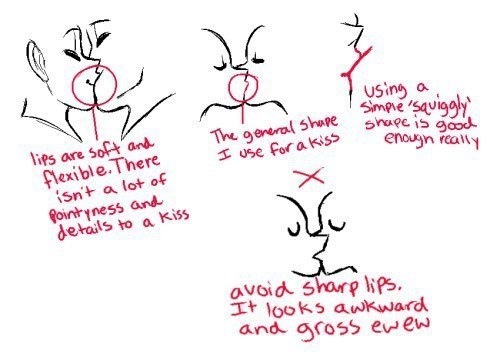 lips are soft and
flexible. There
isn't a lot of
pointyness and
details to a kiss
The general shape
I use for a kiss
using a
simple 'squiggly'
shape is good
enough really
avoid sharp lips.
It looks awkward
and gross ewew